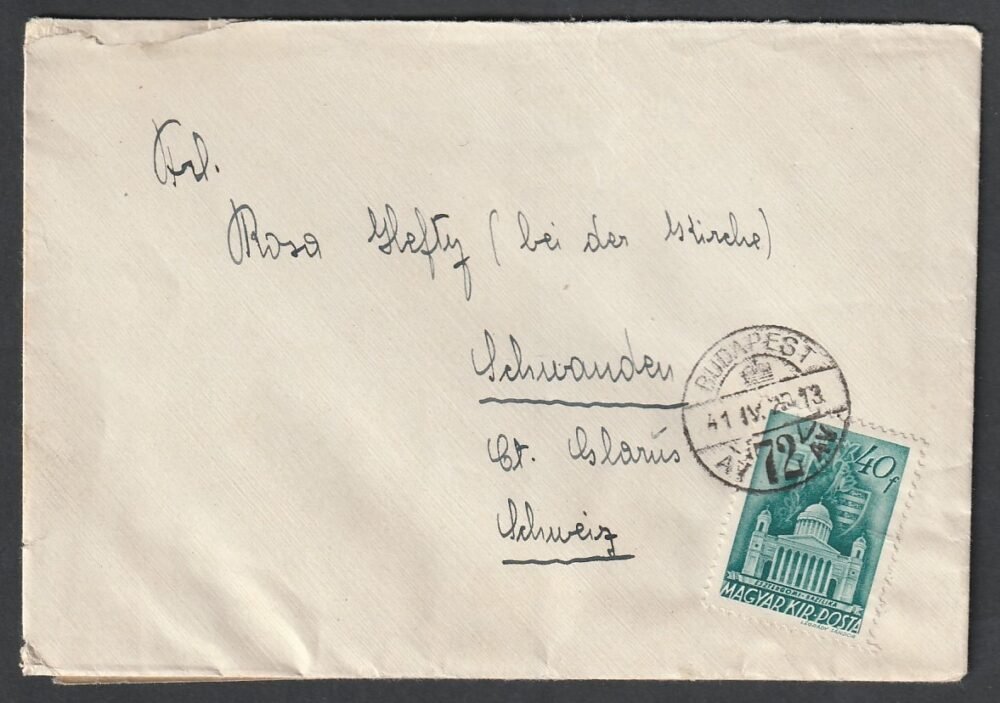 Frl.
Rosa Hefty (bei der Kirche)
Schwanden
Ct. Glarus
Schweiz
BUDAPEST
41 IV. 13
72
40f
ESZTERGOMI-BAZILIKA
MAGYAR KIR·POSTA
LÉGRÁDY SÁNDOR